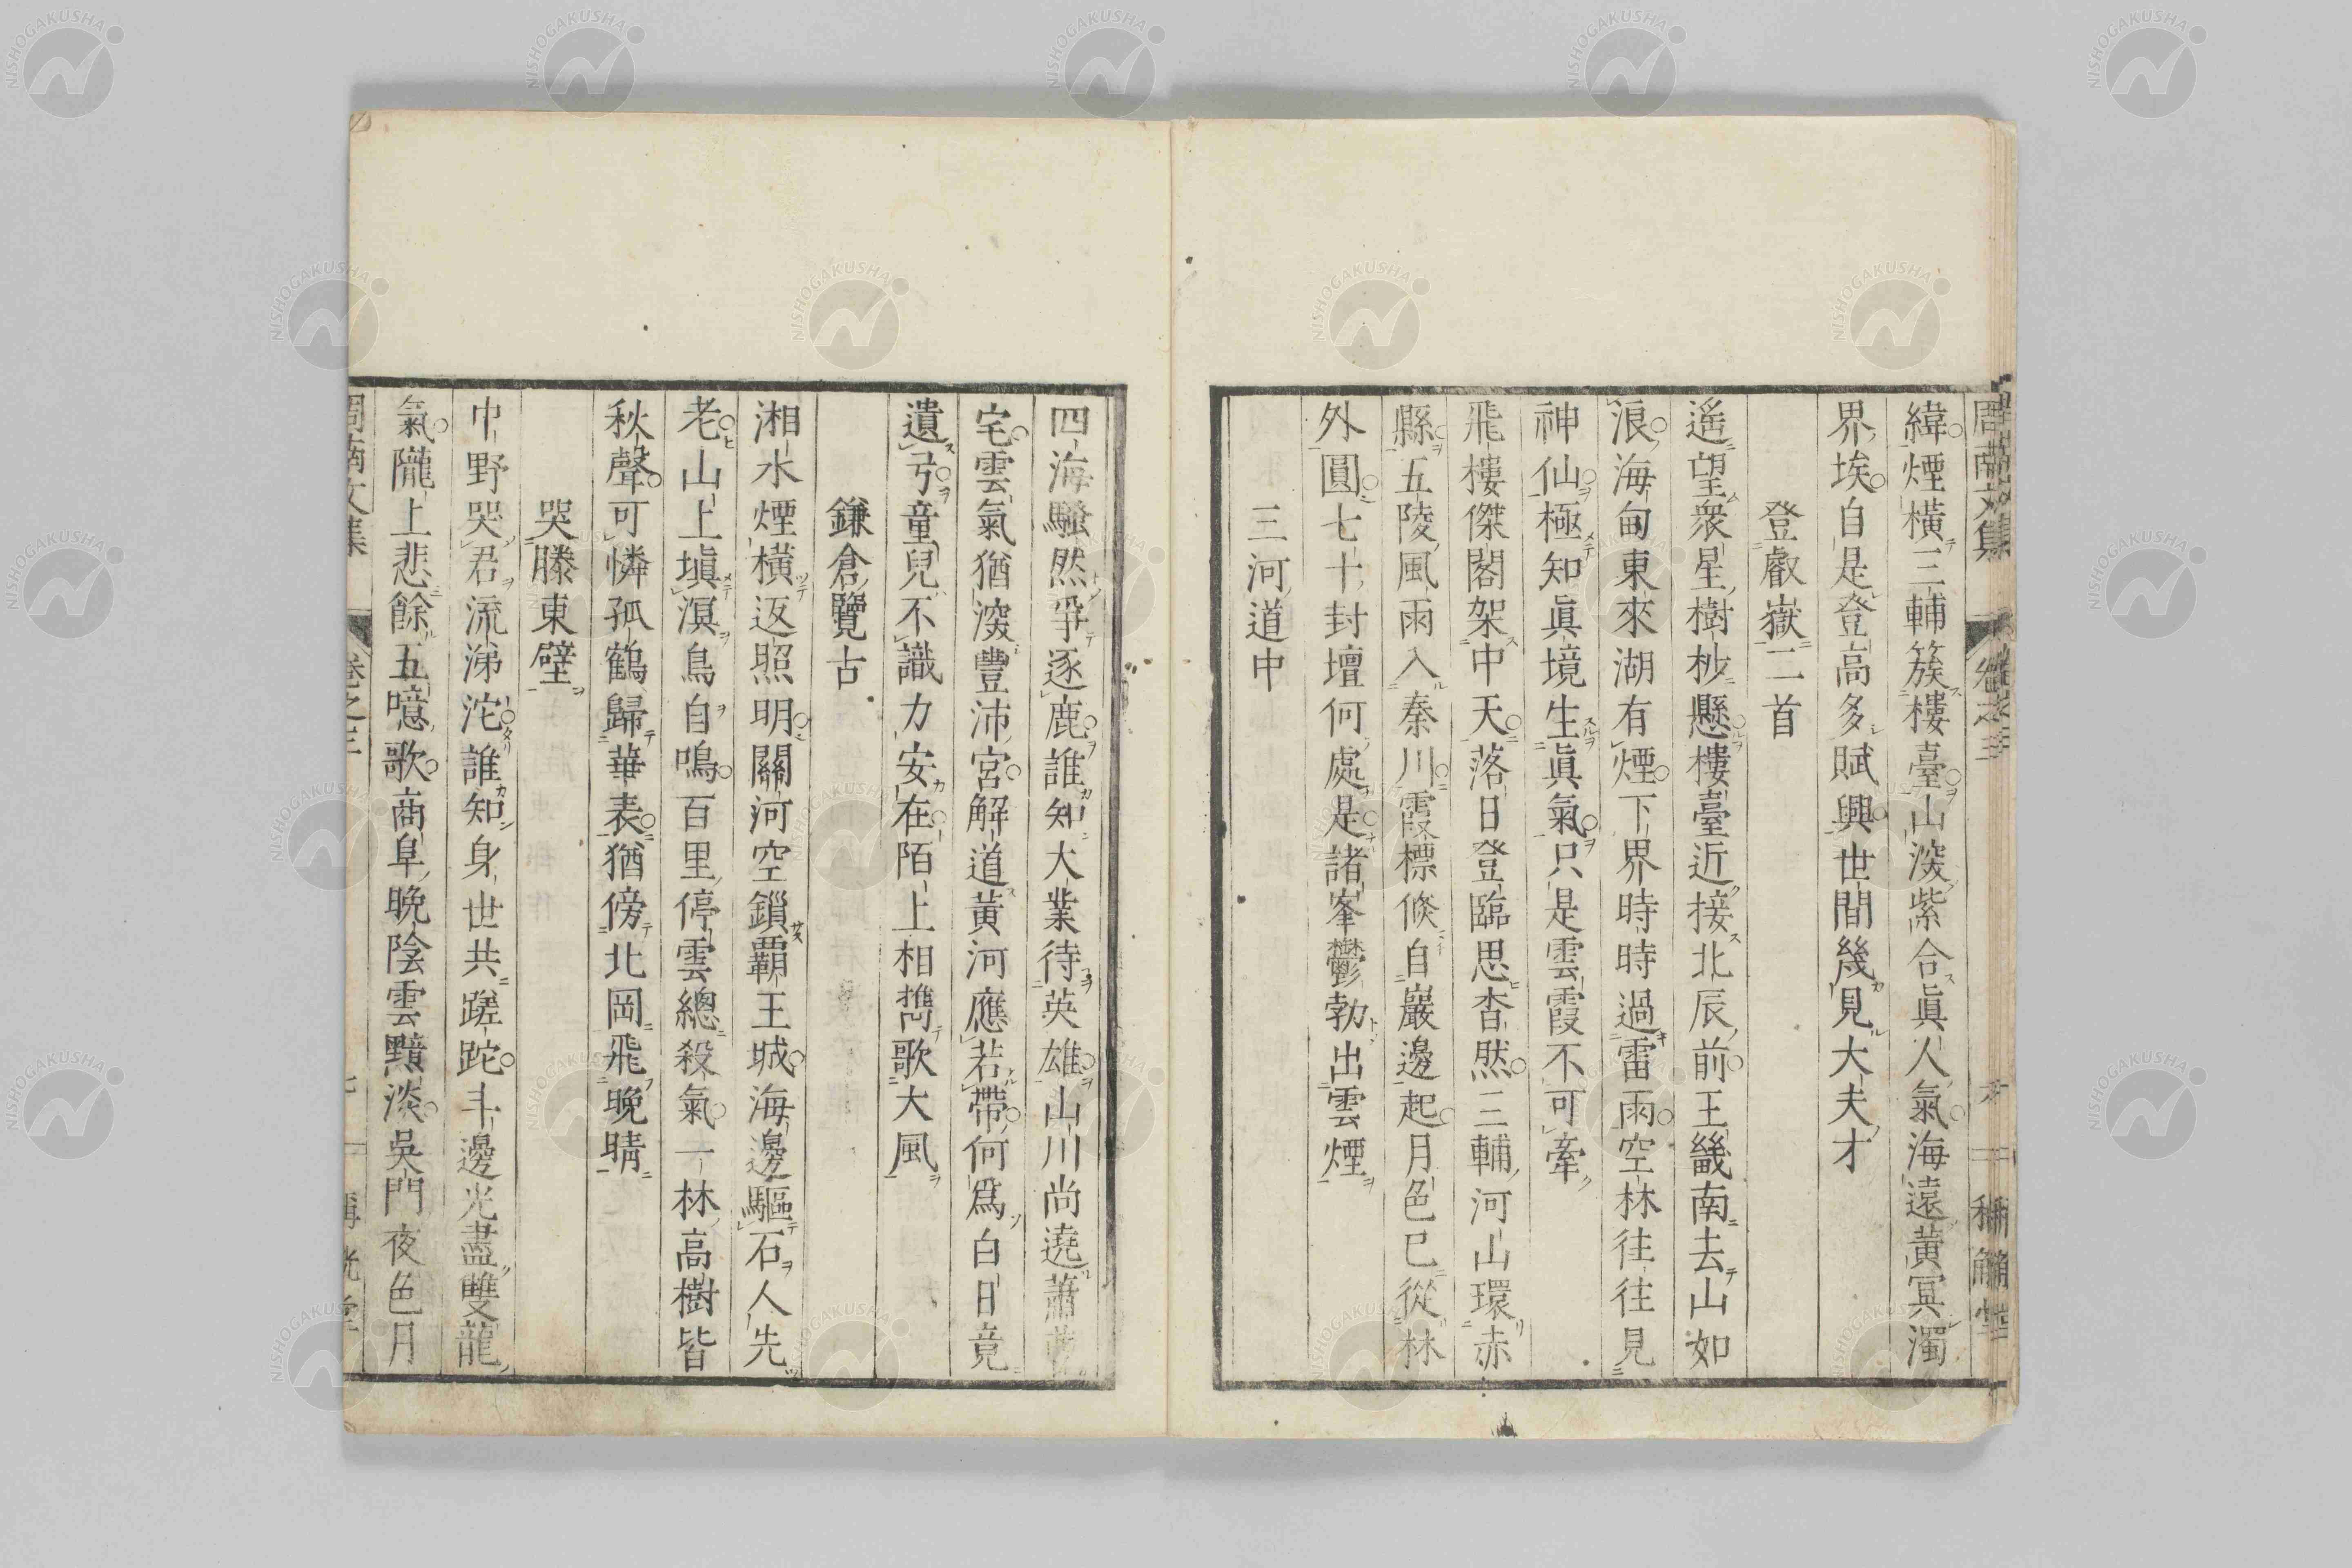 緯煙橫三輔簇樓臺山湥紫合眞人氣海遠黃冥濁
界埃自是登高多賦興世間幾見大夫才
登叡嶽二首
遙望衆星樹杪懸樓臺近接北辰前王畿南去山如
浪海甸東來湖有煙下界時時過雷雨空林往往見
神仙極知眞境生眞氣只是雲霞不可牽
飛樓傑閣架中天落日登臨思杳然三輔河山環赤
縣五陵風雨入秦川霞標倐自巖邊起月色已從林
外圓七十封壇何處是諸峯鬱勃出雲煙
三河道中
四海騷然爭逐鹿誰知大業待英雄山川尚遶蕭
宅雲氣猶湥豐沛宮解道黃河應若帶何爲白日竟
遺弓童兒不識力安在陌上相攜歌大風
鎌倉覽古
湘水煙橫返照明關河空鎖覇王城海邊驅石人先
老山上塡溟鳥自鳴百里停雲總殺氣一林高樹皆
秋聲可憐孤鶴歸華表猶傍北岡飛晚晴
哭滕東壁
巾野哭君流涕沱誰知身世共蹉跎斗邊光盡雙龍
氣隴上悲餘五噫歌商阜晚陰雲黯淡吳門夜色月
周南文集 卷之三